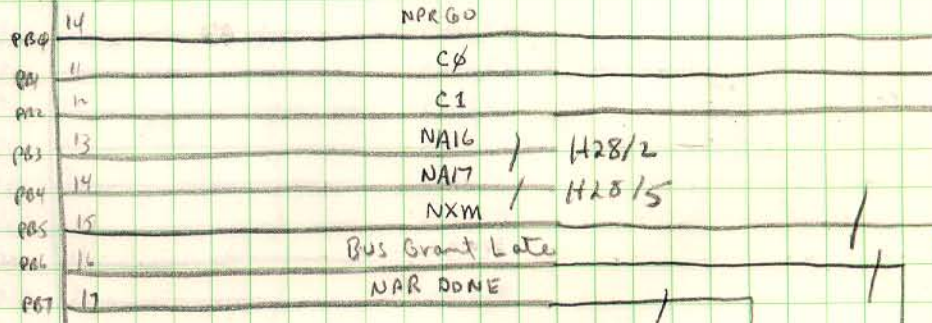 14 NPRGO
PBØ
11 CØ
PB1
12 C1
PB2
13 NA16 H28/2
PB3
14 NA17 H28/5
PB4
15 NXM
PB5
16 Bus Grant Late
PB6
17 NPR DONE
PB7